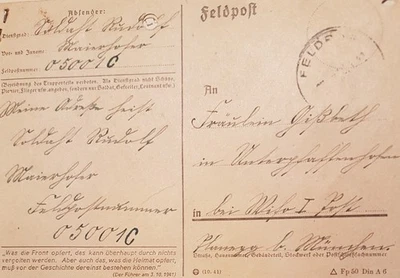 Absender:
Dienstgrad: Soldaht Rudolf
Vor- und Zuname: Maierhofer
Feldpostnummer: 05001C
(Bezeichnung des Truppenteils verboten. Als Dienstgrad nicht Schütze,
Pionier, Flieger usw. angeben, sondern nur Soldat, Gefreiter, Leutnant usw.)
Meine Adräße heist
Soldaht Rudolf
Maierhofer
Feldpostnummer
05001C
„Was die Front opfert, das kann überhaupt durch nichts
vergolten werden. Aber auch das, was die Heimat opfert,
muß vor der Geschichte dereinst bestehen können."
(Der Führer am 3. 10. 1941)
Feldpost
FELDP
An
Fräulein
in Unterpfaffenhofen
in bei Post
Planegg b. München
(10. 41)
△ Fp 50 Din A 6